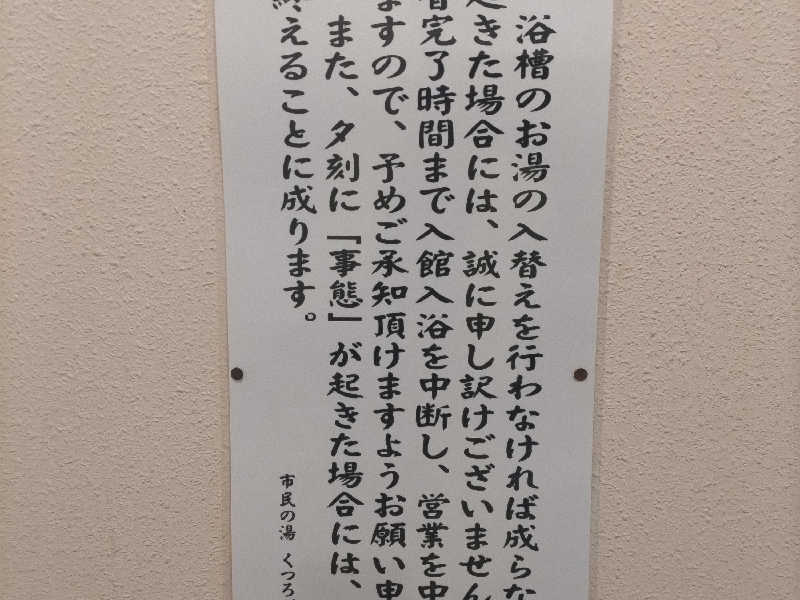 浴槽のお湯の入替えを行わなければ成らな
起きた場合には、誠に申し訳けございません
完了時間まで入館入浴を中断し、営業を中
ますので、予めご承知頂けますようお願い申
また、夕刻に「事態」が起きた場合には、
終えることに成ります。
市民の湯 くつろ